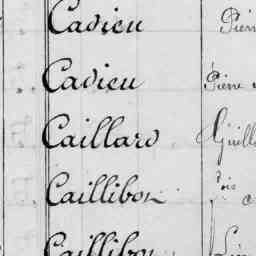 Cadieu Pier
Cadieu Pierre
Caillard Guill
Caillibon
Caillibon